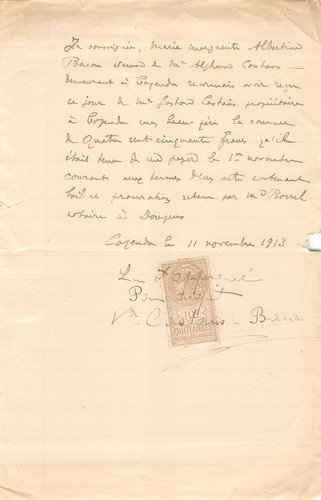 Je soussignée, Marie Marguerite Albertine
Bacou veuve de Mr Alphonse Castans
demeurant à Cazenda reconnais avoir reçu
ce jour de Mr Castans propriétaire
à Cazenda mon beau-père la somme
de Quatre cent cinquante francs qu'il
était tenu de me payer le 1er novembre
courant aux termes d'un acte contenant
bail et procuration retenu par Me Borrel
notaire à Dourgne
Cazenda le 11 novembre 1913
Lu et approuvé
Pour acquit
Vve Castans - Bacou
10c
QUITTANCES